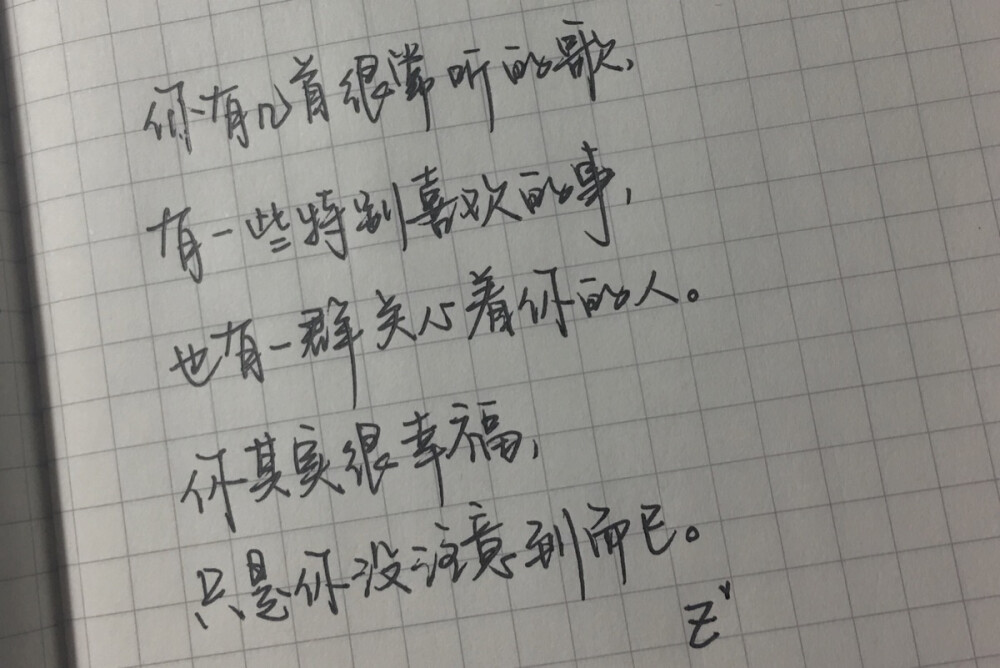 你有几首很常听的歌,
有一些特别喜欢的事,
也有一群关心着你的人。
你其实很幸福,
只是你没注意到而已。
Z